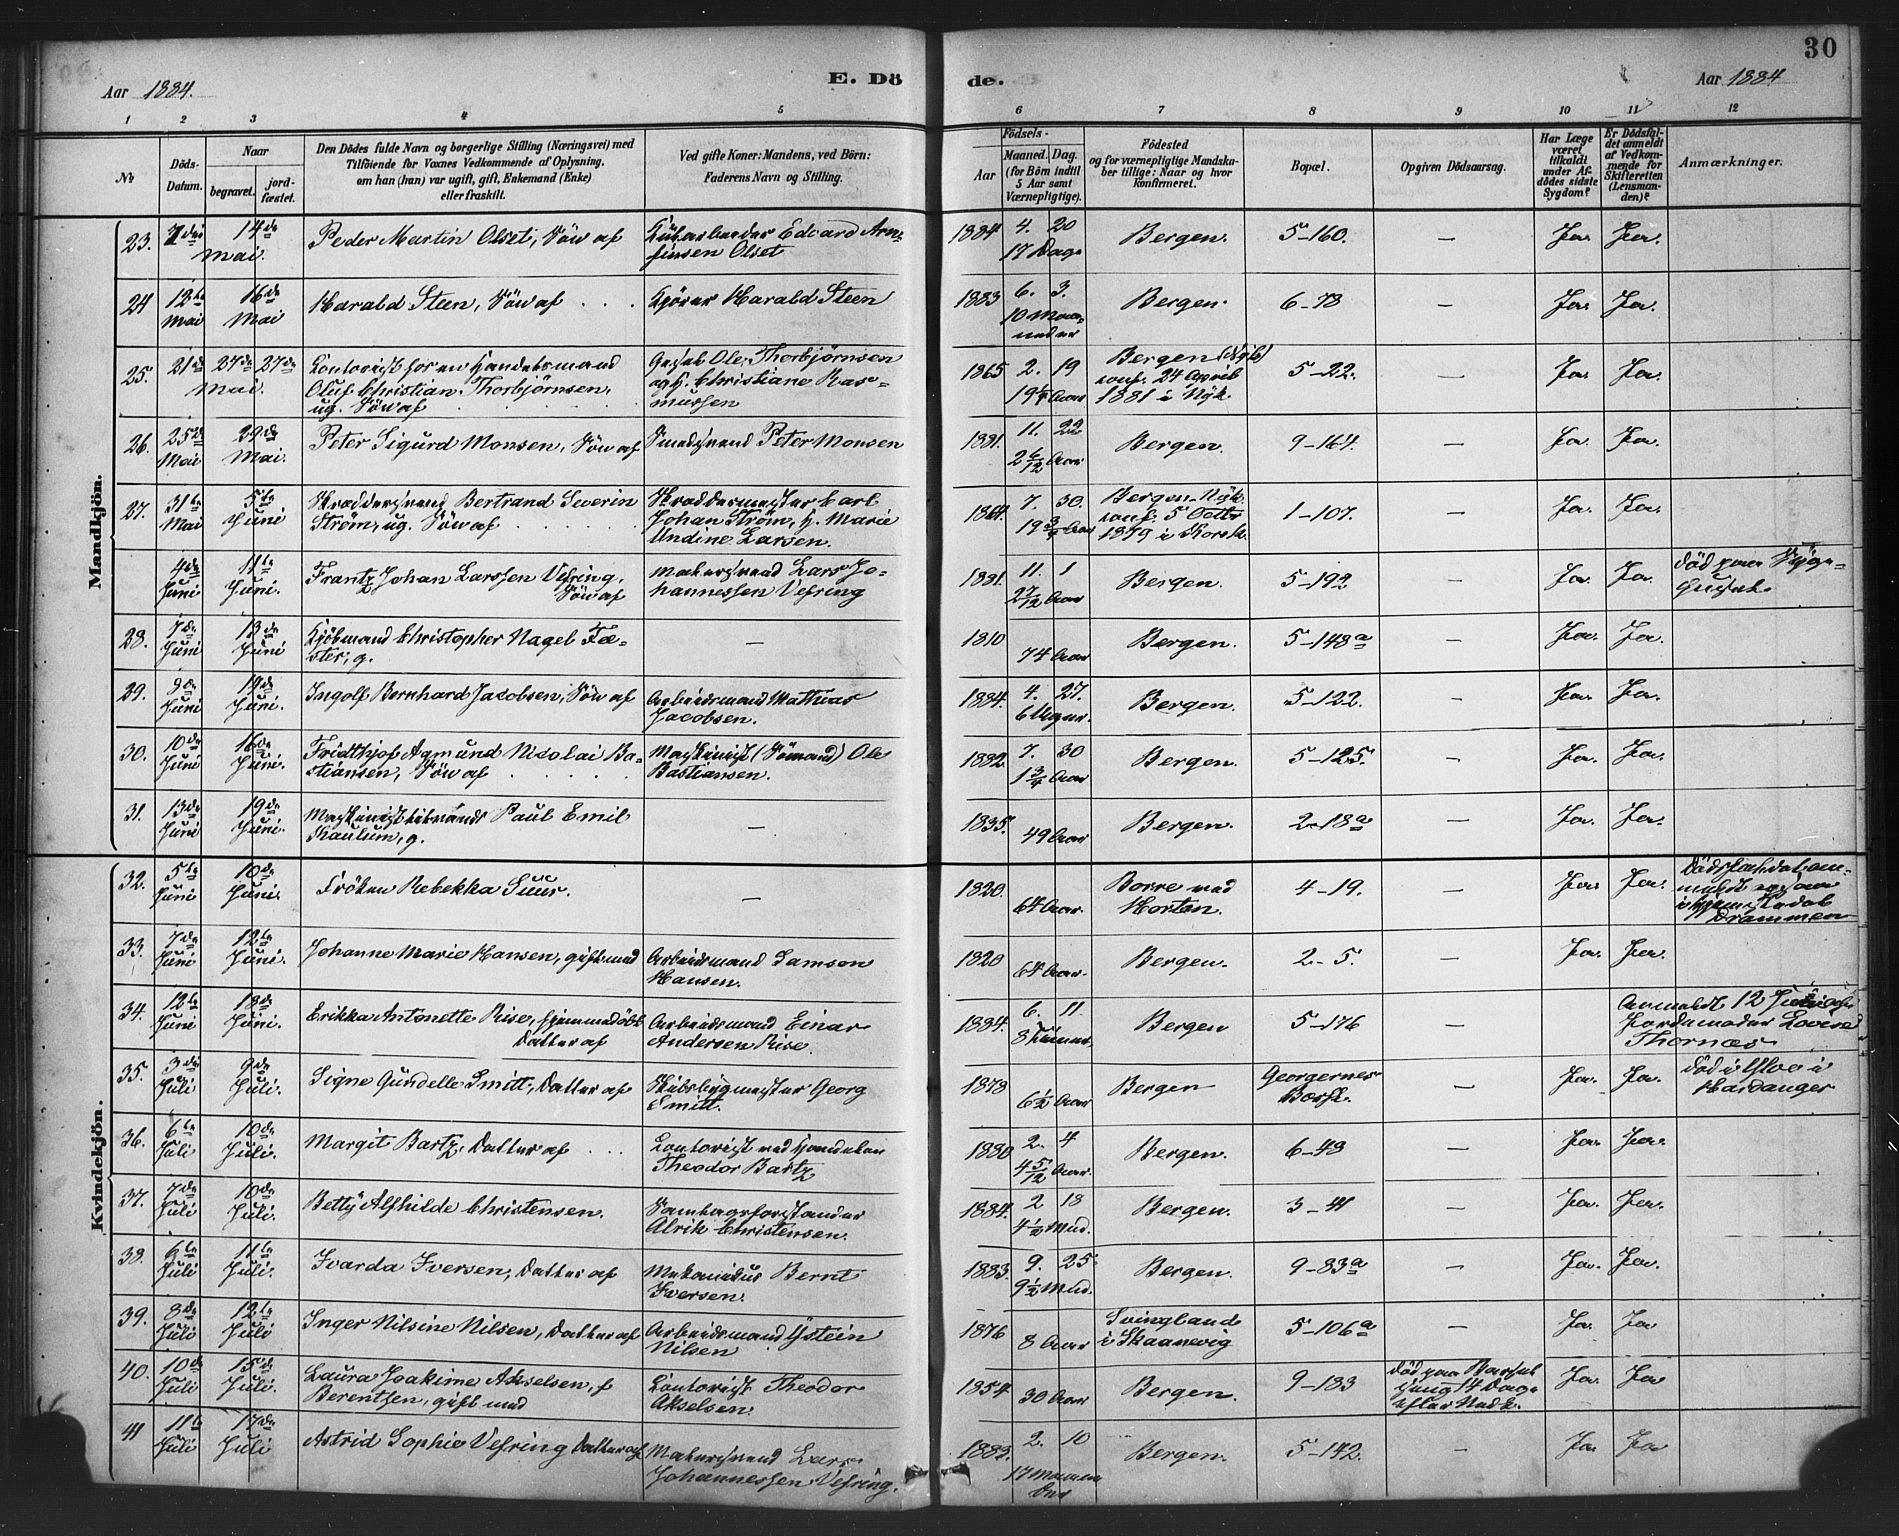 30
Aar 1884.
E. Döde.
Aar 1884
1 2 3 4 5 6 7 8 9 10 11 12
No
Döds-Datum.
Naar
begravet.
jordfæstet.
Den Dödes fulde Navn og borgerlige Stilling (Næringsvei) med
Tilföiende for Voxnes Vedkommende af Oplysning,
om han (hun) var ugift, gift, Enkemand (Enke)
eller fraskilt.
Ved gifte Koner: Mandens, ved Börn:
Faderens Navn og Stilling.
Födsels-
Aar
Maaned. Dag.
(for Börn indtil
5 Aar samt
Værnepligtige).
Födested
og for værnepligtige Mandska-
ber tillige: Naar og hvor
konfirmeret.
Bopæl.
Opgiven Dödsaarsag.
Har Læge
været
tilkaldt
under Af-
dödes sidste
Sygdom?
Er Dödsfal-
det anmeldt
af Vedkom-
mende for
Skifteretten
(Lensman-
den)?
Anmærkninger.
Mandkjön.
23. 14de Mai. Peder Martin Olset, Søn af Edvard Arntsinsen Olset 1884 4. 20 17 Dage Bergen. 5-160. — Ja. Ja.
24 12te Mai 16de Mai Harald Steen, Søn af . . . Kjører Harald Steen 1883 6. 3. 10 Maaneder Bergen. 6-78 — Ja. Ja.
25. 21de 27de 27de Mai. Kontorist for en Handelsmand
Oluf Christian Thorbjørnsen,
ug. Søn af Ole Thorbjørnsen
og H. Christiane Rasmussen 1865 2. 19 19¼ Aar Bergen (Nyk)
conf. 24 April
1881 i Nyk. 5-22. — Ja. Ja.
26. 25de Mai 29de Mai. Peter Sigurd Monsen, Søn af Smedsvend Peter Monsen 1881. 11. 22 2 6/12 Aar Bergen. 9-164. — Ja. Ja.
27. 31te Mai 5te Juni Skræddersvend Bertrand Severin
Strøm, ug. Søn af Skræddermester Carl
Johan Strøm, H. Marie
Undine Larsen. 1864. 7. 30. 19¾ Aar Bergen-Nyk.
conf. 5 Octbr
1879 i Korsk. 1-107. — Ja. Ja.
4de Juni 11te Juni. Frantz Johan Larssen Vefring,
Søn af Malersvend Lars Johannessen Vefring 1881. 11. 1 2 7/12 Aar Bergen. 5-192 — Ja. Ja. død paa Sygehuset.
28. 7de Juni 13de Juni Kjøbmand Christopher Nagel Fæster, g. — 1810 74 Aar Bergen. 5-148a — Ja. Ja.
29. 9de Juni 19de Juni. Ingolf Bernhard Jacobsen, Søn af Arbeidsmand Mathias
Jacobsen. 1884. 4. 27. 6 Uger. Bergen. 5-122. — Ja. Ja.
30. 10de Juni 16de Juni. Fridthjof Agmund Nicolai Bastiansen, Søn af Maskinist (Sømand) Ole
Bastiansen. 1882. 7. 30 1¾ Aar Bergen. 5-125. — Ja. Ja.
31. 13de Juni 19de Juni. Paul Emil
Thaulum, g. — 1835. 49 Aar Bergen. 2-18a — Ja. Ja.
Kvindekjön.
32. 5te Juni 10de Juni. Frøken Rebekka Suur. — 1820. 64 Aar. Borre ved
Horten. 4-19. — Ja. Ja. Drammen
33. 7de Juni 12te Juni. Johanne Marie Hansen, gift med Arbeidsmand Samson
Hansen. 1820 64 Aar. Bergen. 2-5. — Ja. Ja.
34. 12te Juni 18de Juni. Erikka Antonette Rise, hjemmedøbt
Datter af Arbeidsmand Einar
Andersen Rise. 1884. 6. 11. 8 Timer. Bergen 5-176 — Anmeldt 12 Juni af
Jordemoder Lovise
Thornæs
35. 3de Juli 9de Juli. Signe Gundelle Smitt, Datter af Skibsbygmester Georg
Smitt. 1878 6½ Aar Bergen Georgernes
— Ja. Ja. død i Ulve i
Hardanger
36. 6te Juli 10de Juli. Margit Bartz, Datter af . . . Kontorist ved Handelen
Theodor Bartz 1880 2. 4 4 5/12 Aar. Bergen. 6-49 — Ja. Ja.
37. 7de Juli 10de Juli. Betty Alfhilde Christensen.
Alrik Christensen. 1884. 2 18 4½ Mnd. Bergen. 3-41 — Ja. Ja.
38. 6te Juli 11te Juli. Ivarda Iversen, Datter af Mekanikus Bernt
Iversen. 1883. 9. 25. 9½ Mnd. Bergen. 9-83a — Ja. Ja.
39. 8de Juli 12te Juli. Inger Nilsine Nilsen, Datter af Arbeidsmand Østein
Nilsen 1876 8 Aar Svingland
i Skaanevig 5-106a — Ja. Ja
40. 10de Juli 15de Juli. Laura Joakime Akselsen, f
Berentsen, gift med Kontorist Theodor
Akselsen. 1854 30 Aar Bergen. 9-183 død paa Barselseng 14 Dage
efter Nedk. Ja. Ja
41 11te Juli 17de Juli Astrid Sophie Vefring Datter af Malersvend Lars
Johannessen Vefring. 1883. 2. 10 17 Bergen. 5-142. — Ja Ja